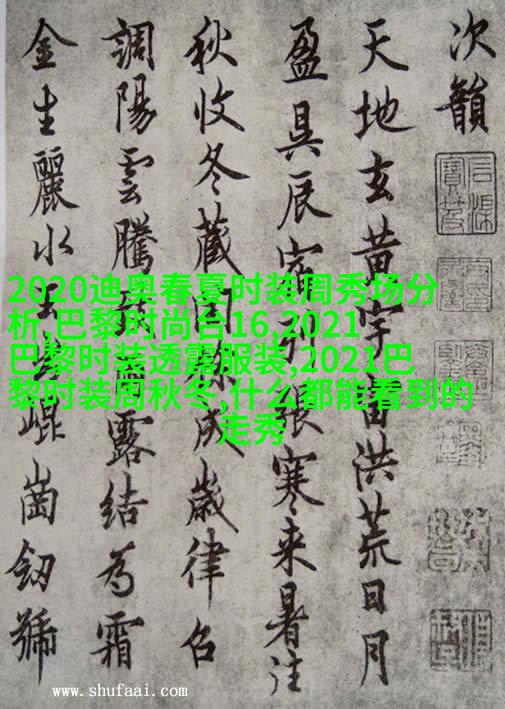 次韻
天地玄黄宇宙洪荒日月
盈昃辰宿列張寒来暑往
秋收冬藏閏餘成歲律召
調陽雲騰致露結為霜
金生麗水玉出崐崗劒號
2020迪奥春夏时装周秀场分
析,巴黎时尚台16,2021
巴黎时装透露服装,2021巴
黎时装周秋冬,什么都能看到的
走秀
www.shufaai.com